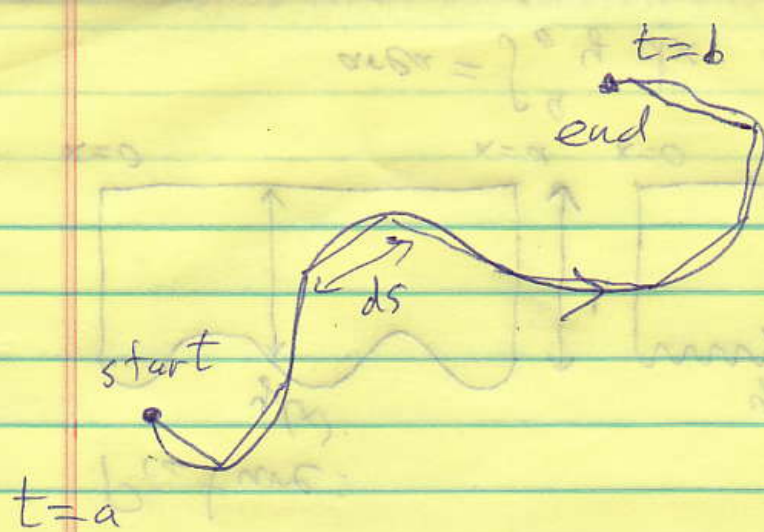 t=b
end
ds
start
t=a